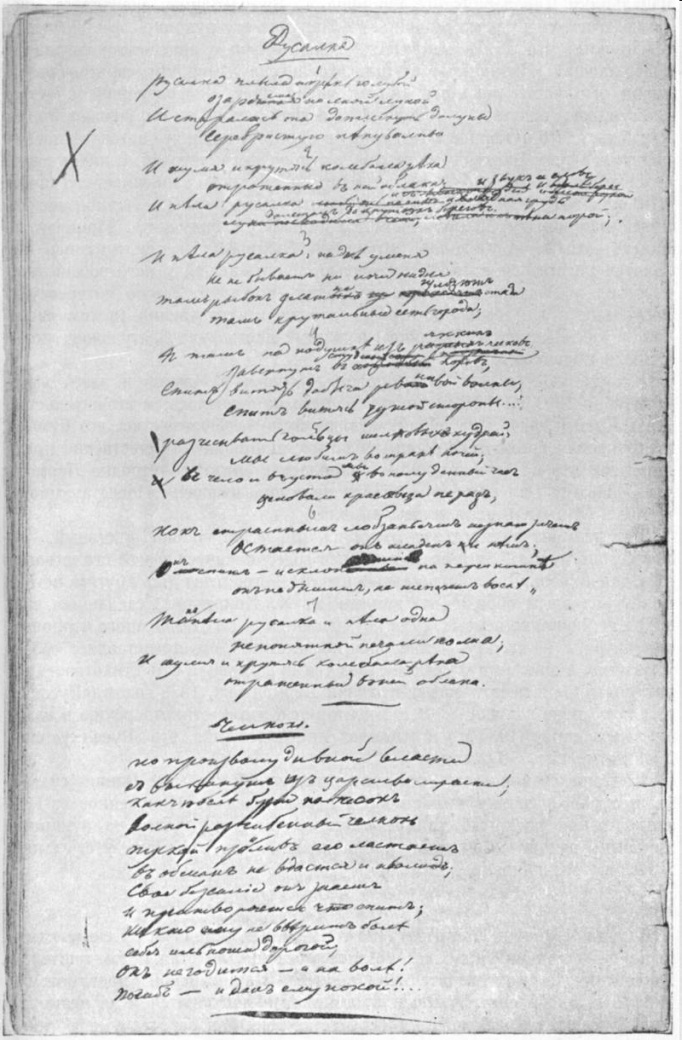 Русалка
Русалка плыла по рѣкѣ голубой
озаряема полной луной
И старалась она доплеснуть до луны
серебристую пѣну волны
2
И шумя и крутясь колебала рѣка
отраженныя въ ней облака
И пѣла русалка и звукъ ея словъ
долеталъ до крутыхъ береговъ.
3
И пѣла русалка: на днѣ у меня
Тамъ рыбокъ златыя гуляютъ стада
тамъ хрустальные есть города;
4
И тамъ на подушкѣ изъ яркихъ песковъ
Спитъ витязь добыча ревнивой волны,
Спитъ витязь чужой стороны...
разчесывать кольцы шелковыхъ кудрей
мы любимъ во мракѣ ночей,
И въ чело и въ уста мы въ полуденный часъ
цѣловали красавца не разъ,
6
Но къ страстнымъ лобзаньямъ не знаю зачемъ
Остается онъ хладенъ и нѣмъ;
Онъ спитъ — и склонившись на перси ко мнѣ
онъ не дышитъ, не шепчетъ во снѣ „
7
Такъ пѣла русалка
непонятной печали полна,
И шумя и крутясь колебала рѣка
отраженныя въ ней облака.
Челнокъ.
По произволу дивной власти
я выкинутъ изъ царства страсти,
какъ послѣ бури на песокъ
волной расшибенный челнокъ
пускай приливъ его ласкаетъ
въ обманъ не вдастся инвалидъ;
Свое безсиліе онъ знаетъ
и притворяется что спитъ;
никто ему не ввѣритъ болѣ
себя иль ноши дорогой;
онъ не годится — а на волѣ!
погибъ — и данъ ему покой!...